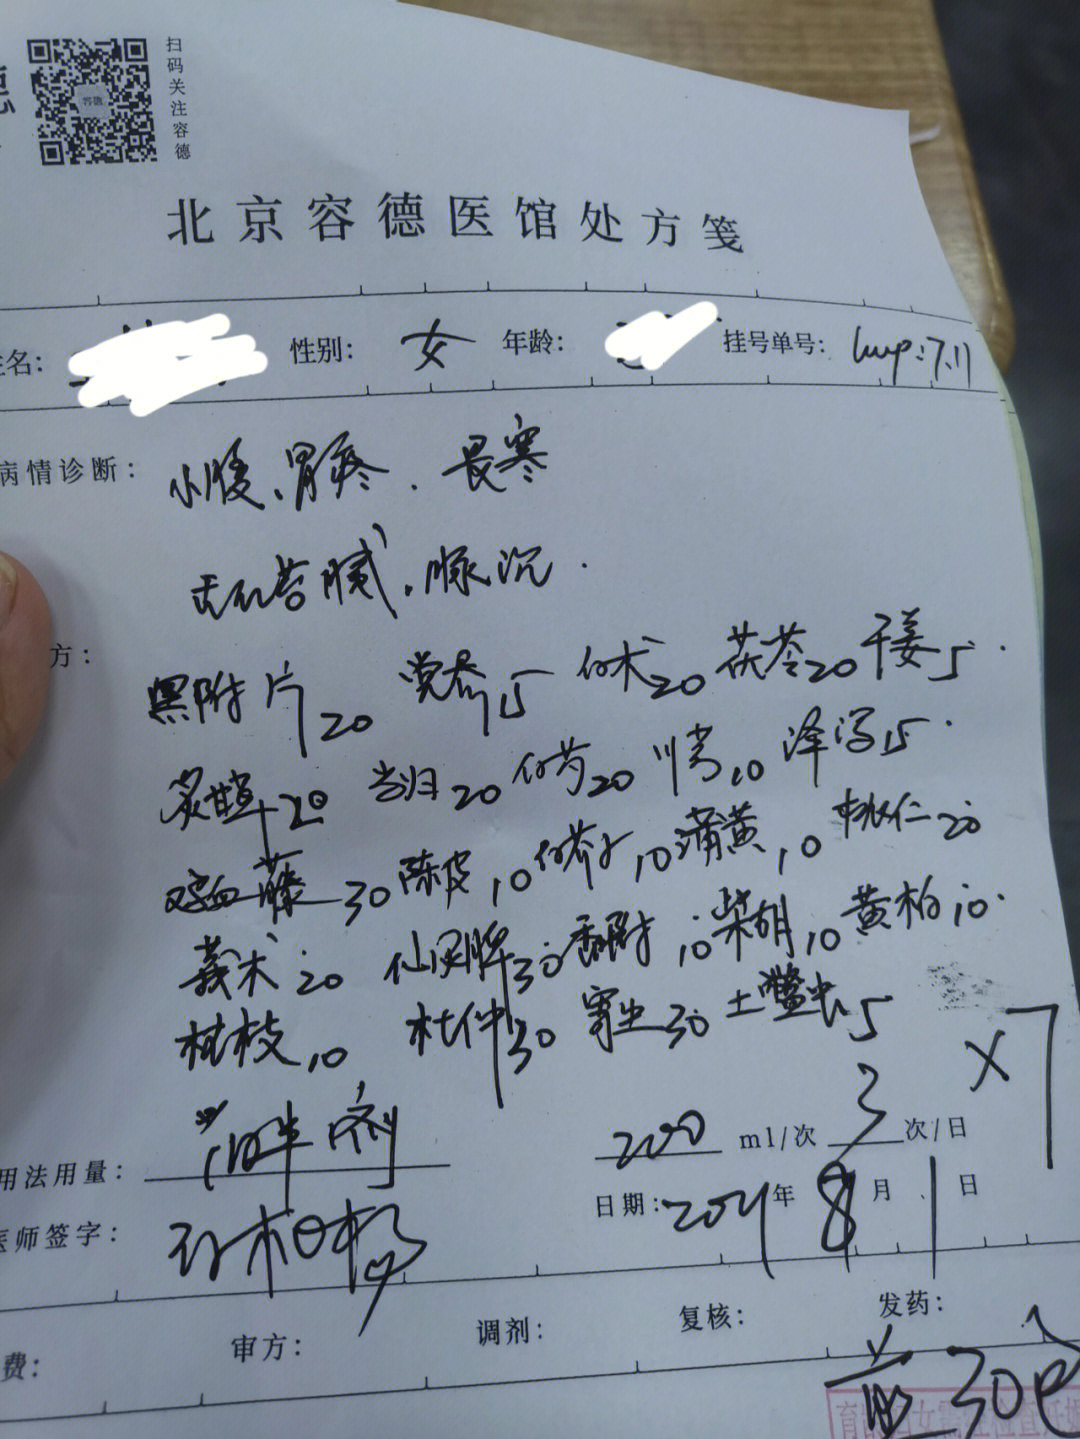 扫码关注容德
北京容德医馆处方笺
姓名: 性别: 女 年龄: 挂号单号: lmp:7.11
病情诊断: 小腹、胃疼. 畏寒
舌红苔腻, 脉沉.
方:
黑附片20 党参15 白术20 茯苓20 干姜5.
炙甘草20 当归20 白芍20 川芎10 泽泻15.
鸡血藤30 陈皮10 白芥子10 蒲黄10 桃仁20
莪术20 仙灵脾30 香附10 柴胡10 黄柏10.
桂枝10 杜仲30 寄生30 土鳖虫5
x7
用法用量: 200 ml/次 3 次/日
医师签字: 日期: 2021年8月1日
费: 审方: 调剂: 复核: 发药: